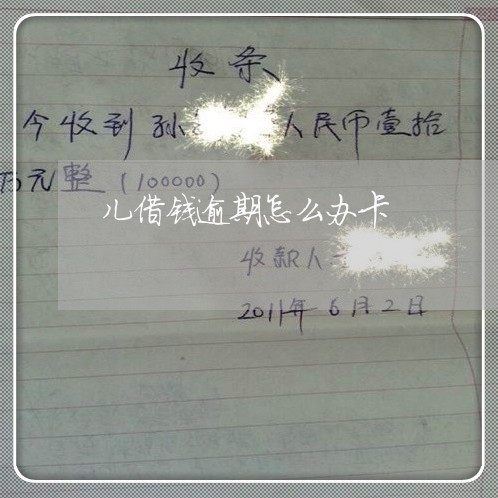 收条
今收到孙 人民币壹拾
万元整（100000）
儿借钱逾期怎么办卡
收款人
2011年6月2日